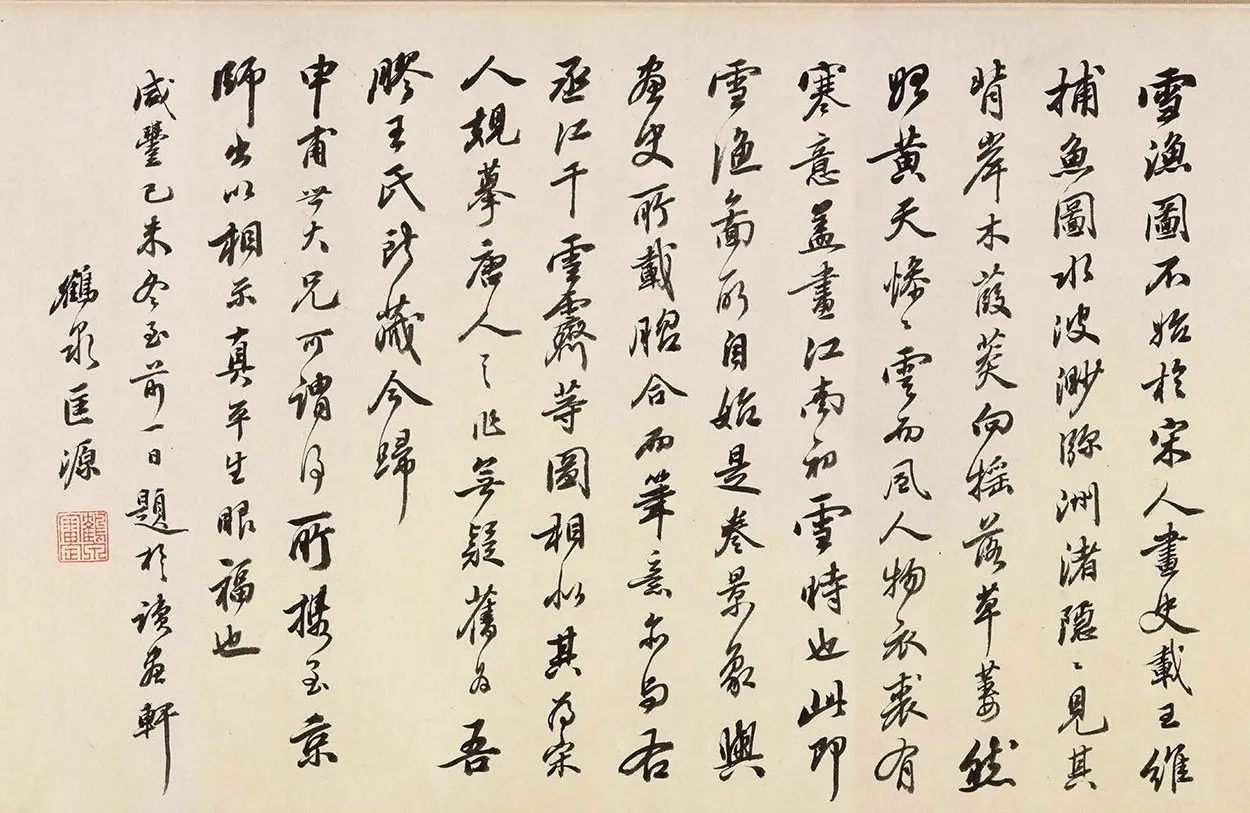 雪漁圖不始於宋人畫史載王維
捕魚圖水波渺瀰洲渚隱〻見其
背岸木葭菼向搖落草萋然
始黃天慘〻雲而風人物衣裘有
寒意蓋畫江南初雪時也此即
雪漁圖所自始是卷景象與
畫史所載脗合而筆意亦与右
丞江干雪霽等圖相似其為宋
人規摹唐人之作無疑舊為吾
膠王氏所藏今歸
申甫世大兄可謂得所攜至京
師出以相示真平生眼福也
咸豐己未冬至前一日題於讀畫軒
鶴泉匡源